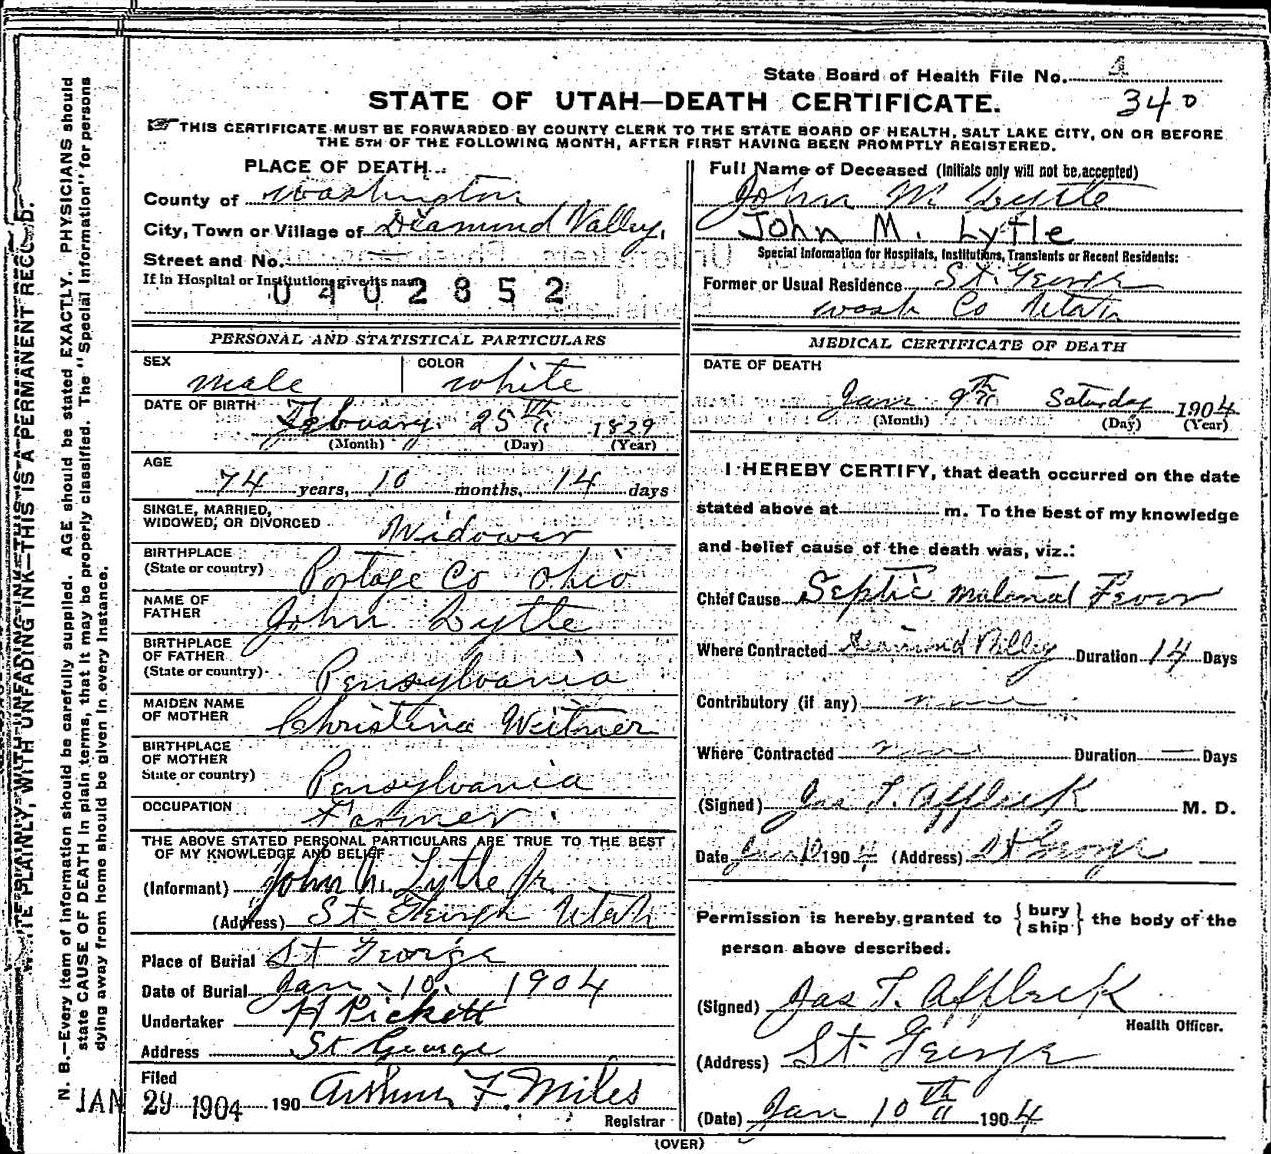 State Board of Health File No. 4
340
STATE OF UTAH—DEATH CERTIFICATE.
☞THIS CERTIFICATE MUST BE FORWARDED BY COUNTY CLERK TO THE STATE BOARD OF HEALTH, SALT LAKE CITY, ON OR BEFORE
THE 5TH OF THE FOLLOWING MONTH, AFTER FIRST HAVING BEEN PROMPTLY REGISTERED.
PLACE OF DEATH
County of Washington
City, Town or Village of Diamond Valley,
Street and No. —
If in Hospital or Institution give its name
0402852
PERSONAL AND STATISTICAL PARTICULARS
SEX male COLOR white
DATE OF BIRTH February 25th 1829
(Month) (Day) (Year)
AGE
74 years, 10 months, 14 days
SINGLE, MARRIED,
WIDOWED, OR DIVORCED Widower
BIRTHPLACE
(State or country) Portage Co Ohio
NAME OF
FATHER John Lytle
BIRTHPLACE
OF FATHER
(State or country) Pensylvania
MAIDEN NAME
OF MOTHER Christina Weitner
BIRTHPLACE
OF MOTHER
State or country) Pensylvania
OCCUPATION Farmer
THE ABOVE STATED PERSONAL PARTICULARS ARE TRUE TO THE BEST
OF MY KNOWLEDGE AND BELIEF
(Informant) John M. Lytle Jr.
(Address) St George Utah
Place of Burial St George
Date of Burial Jan - 10. 1904
Undertaker H Pickett
Address St George
Filed
JAN 29 1904 190 Arthur F. Miles
Registrar
(OVER)
Full Name of Deceased (Initials only will not be accepted)
John M Lytle
John M. Lytle
Special Information for Hospitals, Institutions, Transients or Recent Residents:
Former or Usual Residence St. George
Wash Co Utah
MEDICAL CERTIFICATE OF DEATH
DATE OF DEATH
Jan 9th Saturday 1904
(Month) (Day) (Year)
I HEREBY CERTIFY, that death occurred on the date
stated above at m. To the best of my knowledge
and belief cause of the death was, viz.:
Chief Cause Septic Malarial Fever
Where Contracted Diamond Valley Duration 14 Days
Contributory (if any) none
Where Contracted none Duration — Days
(Signed) Jas T. Affleck M. D.
Date Jan 10 1904 (Address) St George
Permission is hereby granted to { bury ship } the body of the
person above described.
(Signed) Jas T. Affleck
Health Officer.
(Address) St George
(Date) Jan 10th 1904
WRITE PLAINLY, WITH UNFADING INK—THIS IS A PERMANENT RECORD.
N. B.—Every item of information should be carefully supplied. AGE should be stated EXACTLY. PHYSICIANS should
state CAUSE OF DEATH in plain terms, that it may be properly classified. The "Special Information" for persons
dying away from home should be given in every instance.